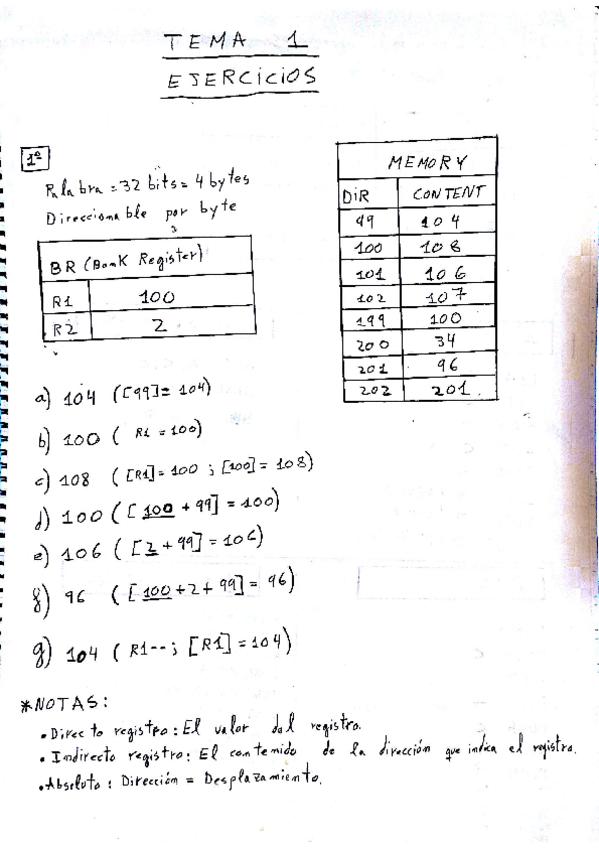 TEMA 1
EJERCICIOS
1º
Palabra = 32 bits = 4 bytes
Direccionable por byte
BR (Bank Register)
R1 100
R2 2
MEMORY
DIR CONTENT
99 104
100 108
101 106
102 107
199 100
200 34
201 96
202 201
a) 104 ([99] = 104)
b) 100 ( R1 = 100)
c) 108 ([R1] = 100 ; [100] = 108)
d) 100 ([ 100 + 99] = 100)
e) 106 ( [2 + 99] = 106)
f) 96 ([100 + 2 + 99] = 96)
g) 104 ( R1-- ; [R1] = 104)
*NOTAS:
• Directo registro: El valor del registro.
• Indirecto registro: El contenido de la dirección que indica el registro.
• Absoluto: Dirección = Desplazamiento.